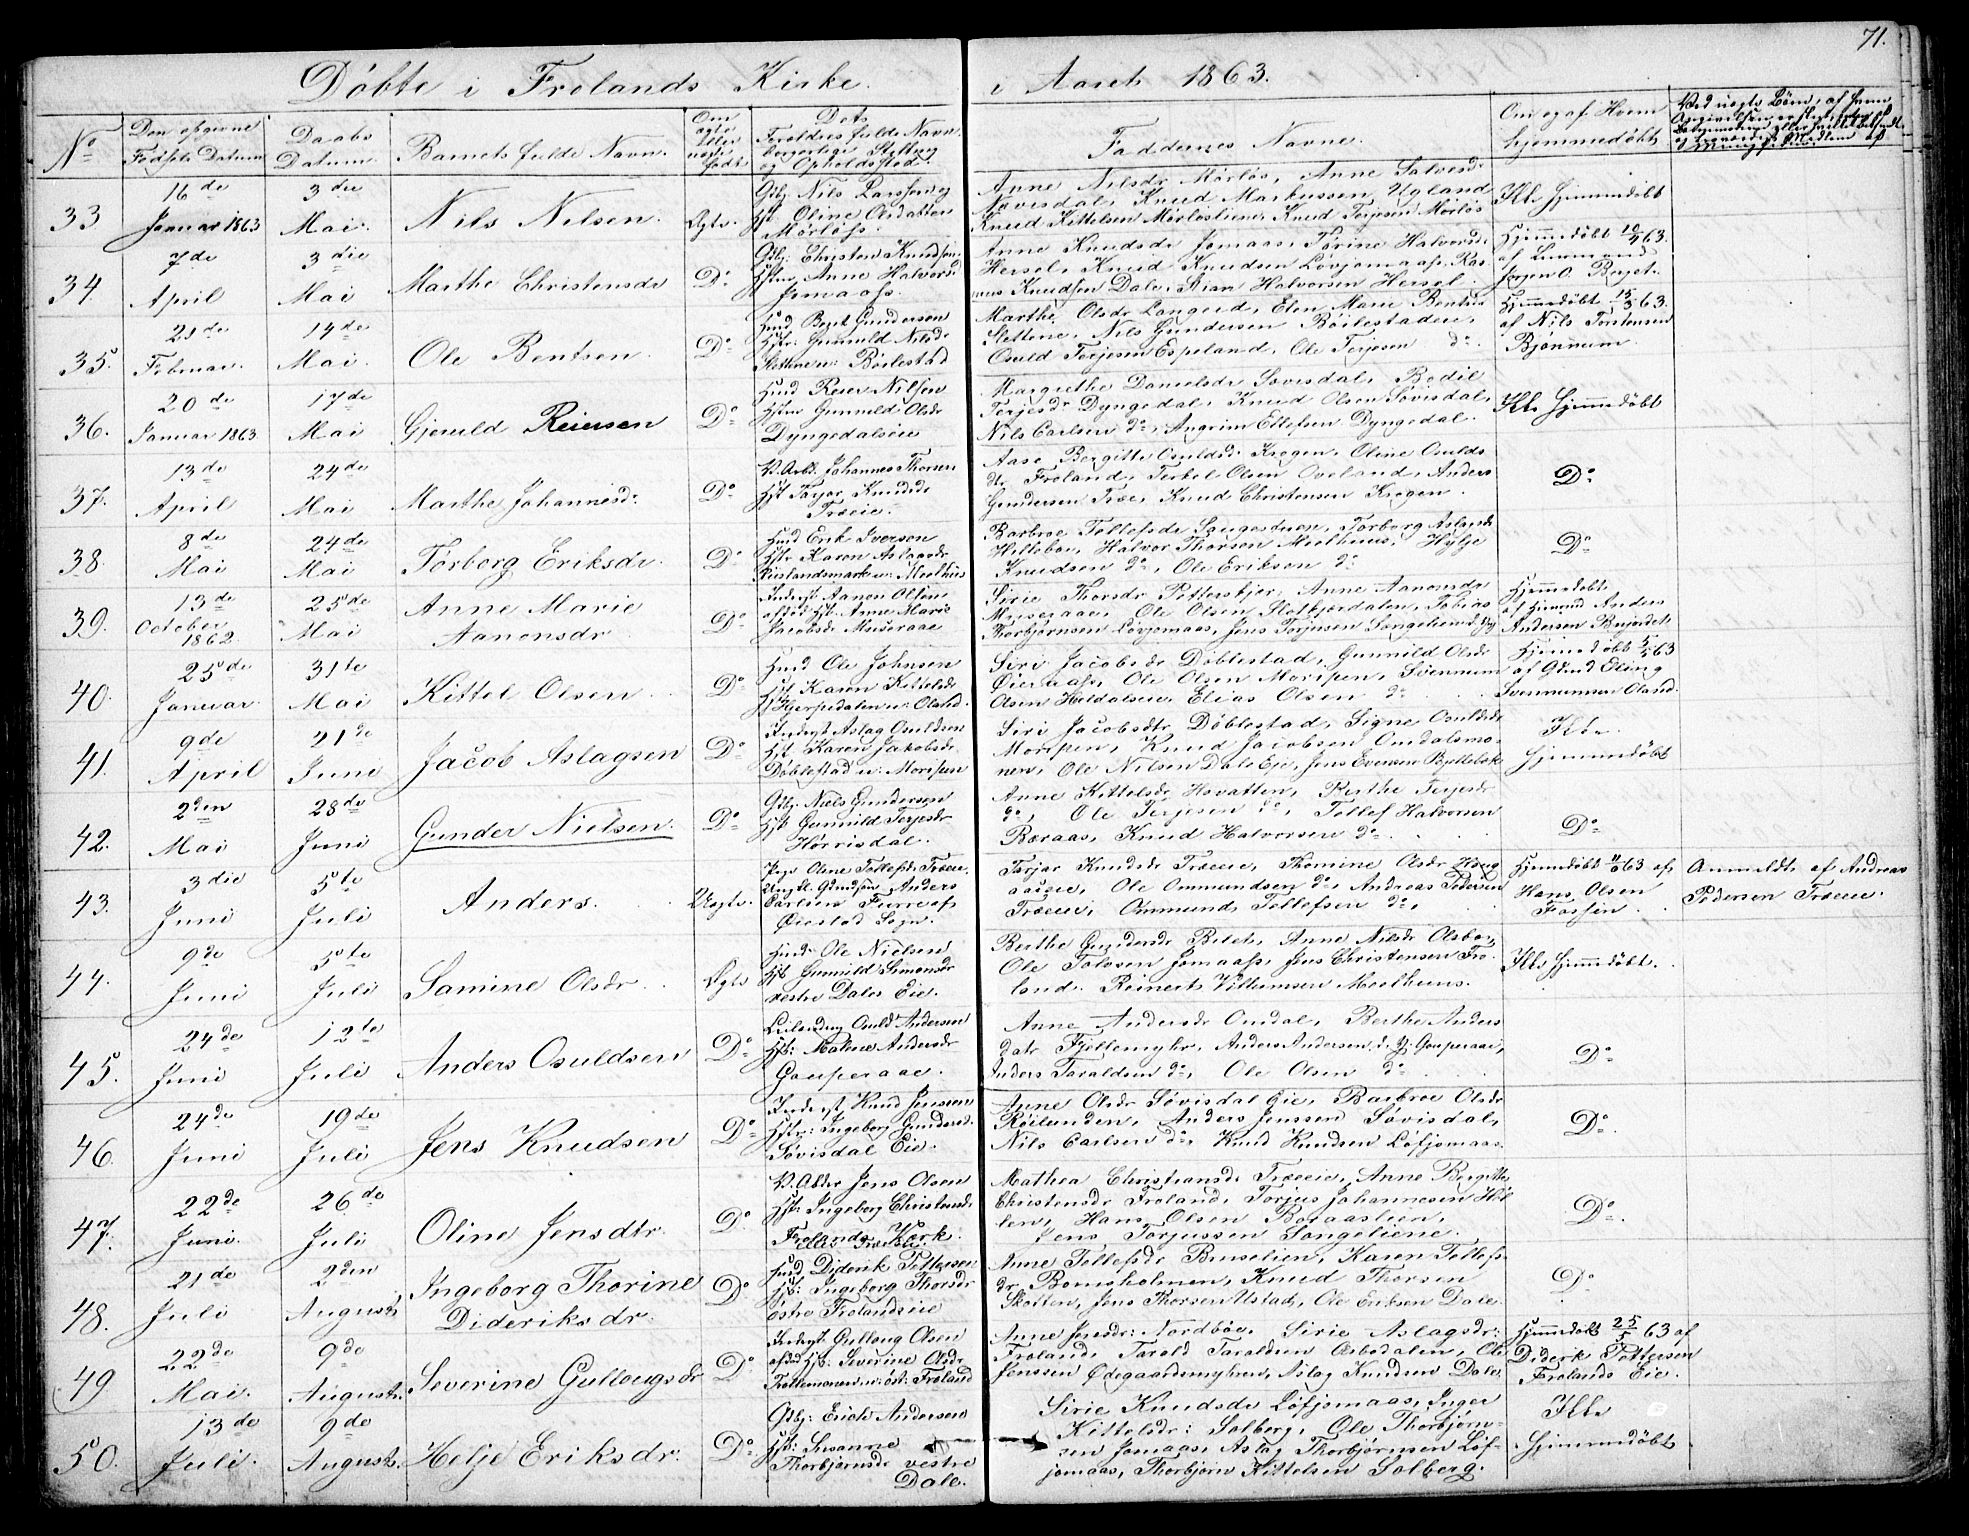 71.
Döbte i Frolands Kirke.
i Aaret 1863.
No
Den opgivne
Födsels Datum
Daabs
Datum
Barnets fulde Navn.
Om
ægte
eller
uægte
født
Dets
Forældres fulde Navn,
borgerlige Stilling
og Opholdssted.
Faddernes Navne.
Om og af Hvem
hjemmedöbt
33
16de
Januar 1863
3die
Mai.
Nils Nilsen.
Ægte.
Gdbr. Nils Larssen og
Hst Oline Olsdatter
Mörlös.
Anne Nilsdr Mörlös, Anne Salvesdr
Knud Markussen Ugland
Knud Kittelsen Mörlöslien, Knud Terjesen Mörlös
Ikke hjemmedöbt
34
7de
April
3die
Mai
Marthe Christensdr
Do
Gdbr. Christen Knudsen
Hstru Anne Halvorsd
Jomaass.
Anne Knudsdr Jomaas, Torine Halvorsdr
Hersel, Knud Knudsen Lövjomaas, Ras-
mus Knudsen Dale, Stian Halvorsen Hersel.
Hjemmedöbt 10/4 63.
af Lensmand
Jörgen O. Berget.
35.
21de
Februar.
14de
Mai.
Ole Bentsen.
Do
Husd Bent Gundersen
Hstr. Gunnuld Nilsdr
Slettene u. Böilestad
Marthe Olsdr Langerd, Elen Marie Bentsd
Slettene, Nils Gundersen Böilestadeie,
Osuld Torjesen Espeland, Ole Terjesen do.
Hjemmedöbt 15/3 63.
af Nils Torstensen
Bjönnum.
36.
20de
Januar 1863
17de
Mai
Gjeruld Reiersen
Do
Husd Reier Nilsen
Hstru Gunnuld Olsdr
Dyngedalseie
Margrethe Danielsdr Sövisdal, Bodil
Terjesdr Dyngedal, Knud Olsen Sövisdal,
Nils Carlsen do, Angrim Ellefsen Dyngedal
Ikke hjemmedöbt
37.
13de
April
24de
Mai
Marthe Johannesdr.
Do
V. Arbd. Johannes Thorsen
Hst Torjor Knudsdr
Træeie.
Aase Bergitte Osuldsd. Krogen, Oline Osulds
dr Froland, Terkel Olsen Oveland, Anders
Gundersen Træe, Knud Christensen Krogen.
Do
38.
8de
Mai
24de
Mai
Torborg Eriksdr.
Do
Husd Erik Iversen
Hstr Karen Aslagsdr
Rislandsmark u. Mælhus
Barbroe Tellefsdr Saugestuen, Torborg Aslagsdr
Hillebu, Halvor Thorsen Mielhuus, Hylje
Knudsen do, Ole Eriksen do
Do
39.
13de
October
1862.
25de
Mai
Anne Marie
Aanonsdr
Do
Inderst Aanon Olsen
afdöd Hst. Anne Marie
Jacobsdr Museraae
Sirie Thorsdr Pottersbjer, Anne Aanonsdr
Museraae, Ole Olsen Slotbjerdalen, Tobias
Thorbjörnsen Lövjomaas, Jens Torjusen Songelien
Hjemmedöbt
Anders
Andersen
40.
25de
Januar.
31te
Mai
Kittel Olsen
Do
Husd Ole Johnsen
Hst Karen Kittelsdr
Hjerpedalen u. Olsbd.
Siri Jacobsdr Döblestad, Gunnild Olsdr
Öieraass, Ole Olsen Moripen, Svennum
Olsen Heldalseie, Elias Olsen do
Hjemmedöbt 5/5 63
Svennumsen Oland.
41.
9de
April
21de
Juni
Jacob Aslagsen
Do
Inderst Aslag Osuldsen
Hst. Karen Jakobsdr
Döblestad u. Moripen
Siri Jacobsdtr Döblestad, Signe Osuldsdr
Moripen, Knud Jacobsen Omdalsmo-
nen, Ole Nilsen Dale Eje, Jens Evensen Byllebek
Ikke
hjemmedöbt
42.
2den
Mai
28de
Juni
Gunder Nielsen.
Do
Gdbr. Niels Gundersen
Hst Gunnild Terjesdr
Hörrisdal.
Anne Kittelsdr Hsvatten, Berthe Terjesdr
do, Ole Terjesen do, Tellef Halvorsen
Boraas, Knud Halvorsen do.
Do
43.
3die
Juni
5te
Juli
Anders.
Uægte.
Pige Oline Tellefsdr Træeie,
Ungkl. Anders
Carlsen
Öiestad Sogn.
Torjor Knudsdr Træeie, Thomine Olsdr Houg
aaseie, Ole Ommundsen do, Andreas Pedersen
Træeie, Ommund Tellefsen do,
Hjemmedöbt 4/6 63 af
Hans Olsen
Fossein.
Anmeldt af Andreas
Pedersen Træeie.
44.
9de
Juni
5te
Juli
Samine Olsdr.
Ægte
Husd. Ole Nielsen
Hst Gunnild Simonsdr
vestre Dales Eie.
Berthe Gundersdr Bilet, Anne Nilsdr Olsbor,
Ole Salvesen Jomaass, Jens Christensen Fro-
land. Reinert Villumsen Mielhuus.
Ikke hjemmedöbt.
45.
24de
Juni
12te
Juli
Anders Osuldsen
Do
Leilænding Osuld Andersen
Hst: Malene Andersdr
Gauperaae.
Anne Andersdr Omdal, Berthe Anders
datr Fjellemyhr, Anders Andersen d. y. Gauperaae,
Anders Taraldsen do, Ole Olsen do
Do
46.
24de
Juni
19de
Juli
Jens Knudsen
Do
Inderst Knud Jensen
Hstr: Ingeborg Gundersd.
Sövisdal Eie.
Anne Olsdr Sövisdal Eie, Barbroe Olsdr
Röilunden, Anders Jenssen Sövisdal,
Nils Carlsen do, Knud Knudsen Löfjomaas.
Do
47.
22de
Juni.
26de
Juli
Oline Jensdtr.
Do
V. Arbdr Jens Olsen
Hst. Ingeborg Christensd.
Frolands Værk.
eller Træeie.
Mathea Christiansdr Træeie, Anne Bergitte
Christensdr Froland, Torjus Johannesen Hil-
len, Hans Olsen Boraaslien,
Jens Torjussen Songeliene.
Do
48.
21de
Juli
2den
August.
Ingeborg Thorine
Dideriksdr.
Do
Husd Diderik Pettersen
Hst. Ingeborg Thorsdr
östre Frolandseie
Anne Tellefsdr Bruselien, Karen Tellefs-
dr Bomsholmen, Knud Thorsen
Skotten, Jens Thorsen Ustad, Ole Eriksen Dale.
Do
49
22de
Mai.
9de
August.
Severine Gullougsdr
Do
Inderst Gulloug Olsen
afdöd Hst. Severine Olsdr
u. öst. Froland
Anne Jensdr: Nordböe, Sirie Aslagsdr:
Froland, Tarald Taraldsen Osbodalen, Ole
Jenssen Ödegaardsmyhren, Aslag Knudsen Dale.
Hjemmedöbt 25/5 63 af
Diderk Pettersen
Frolands Eie.
50.
13de
Juli.
9de
August.
Helje Eriksdr.
Do
Gdbr: Erich Andersen
Hst: Susanne
Thorbjörnsdr vestre
Dale.
Sirie Knudsdr Löfjomaas, Inger
Kittelsdr: Solberg, Ole Thorbjörn-
sen Jomaas, Aslag Thorbjörnsen Löf-
jomaas, Thorbjörn Kittelsen Solberg.
Ikke
hjemmedöbt